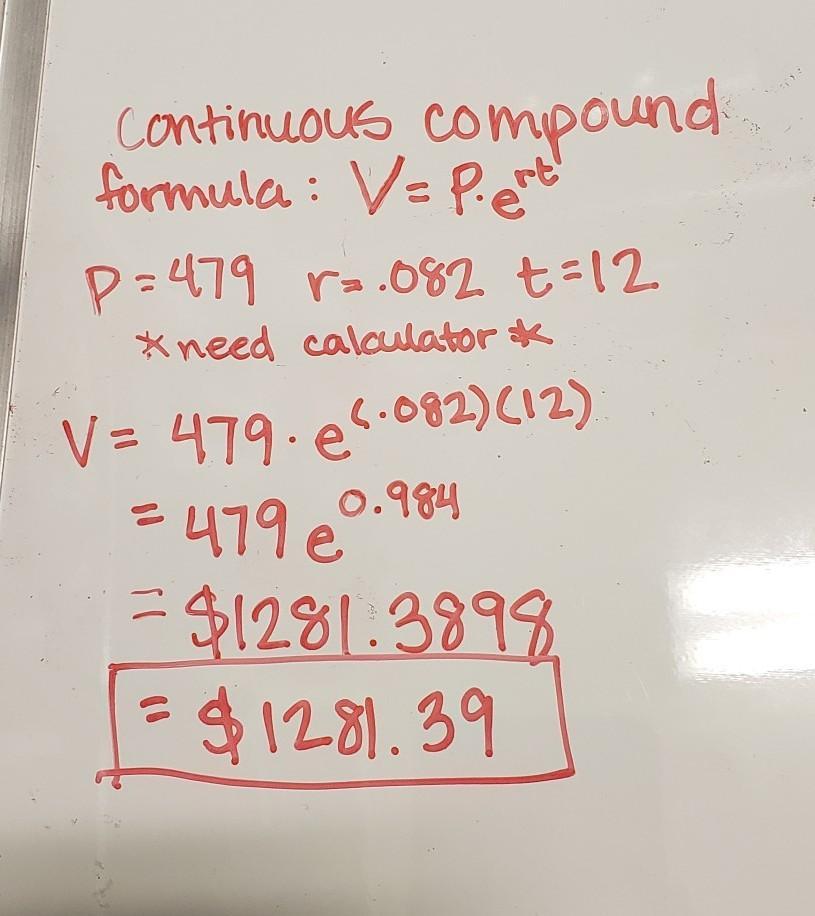 Continuous compound
formula: V = P·e^rt
P = 479 r = .082 t = 12
*need calculator*
V = 479 · e^(.082)(12)
= 479 e^0.984
= $1281.3898
= $1281.39